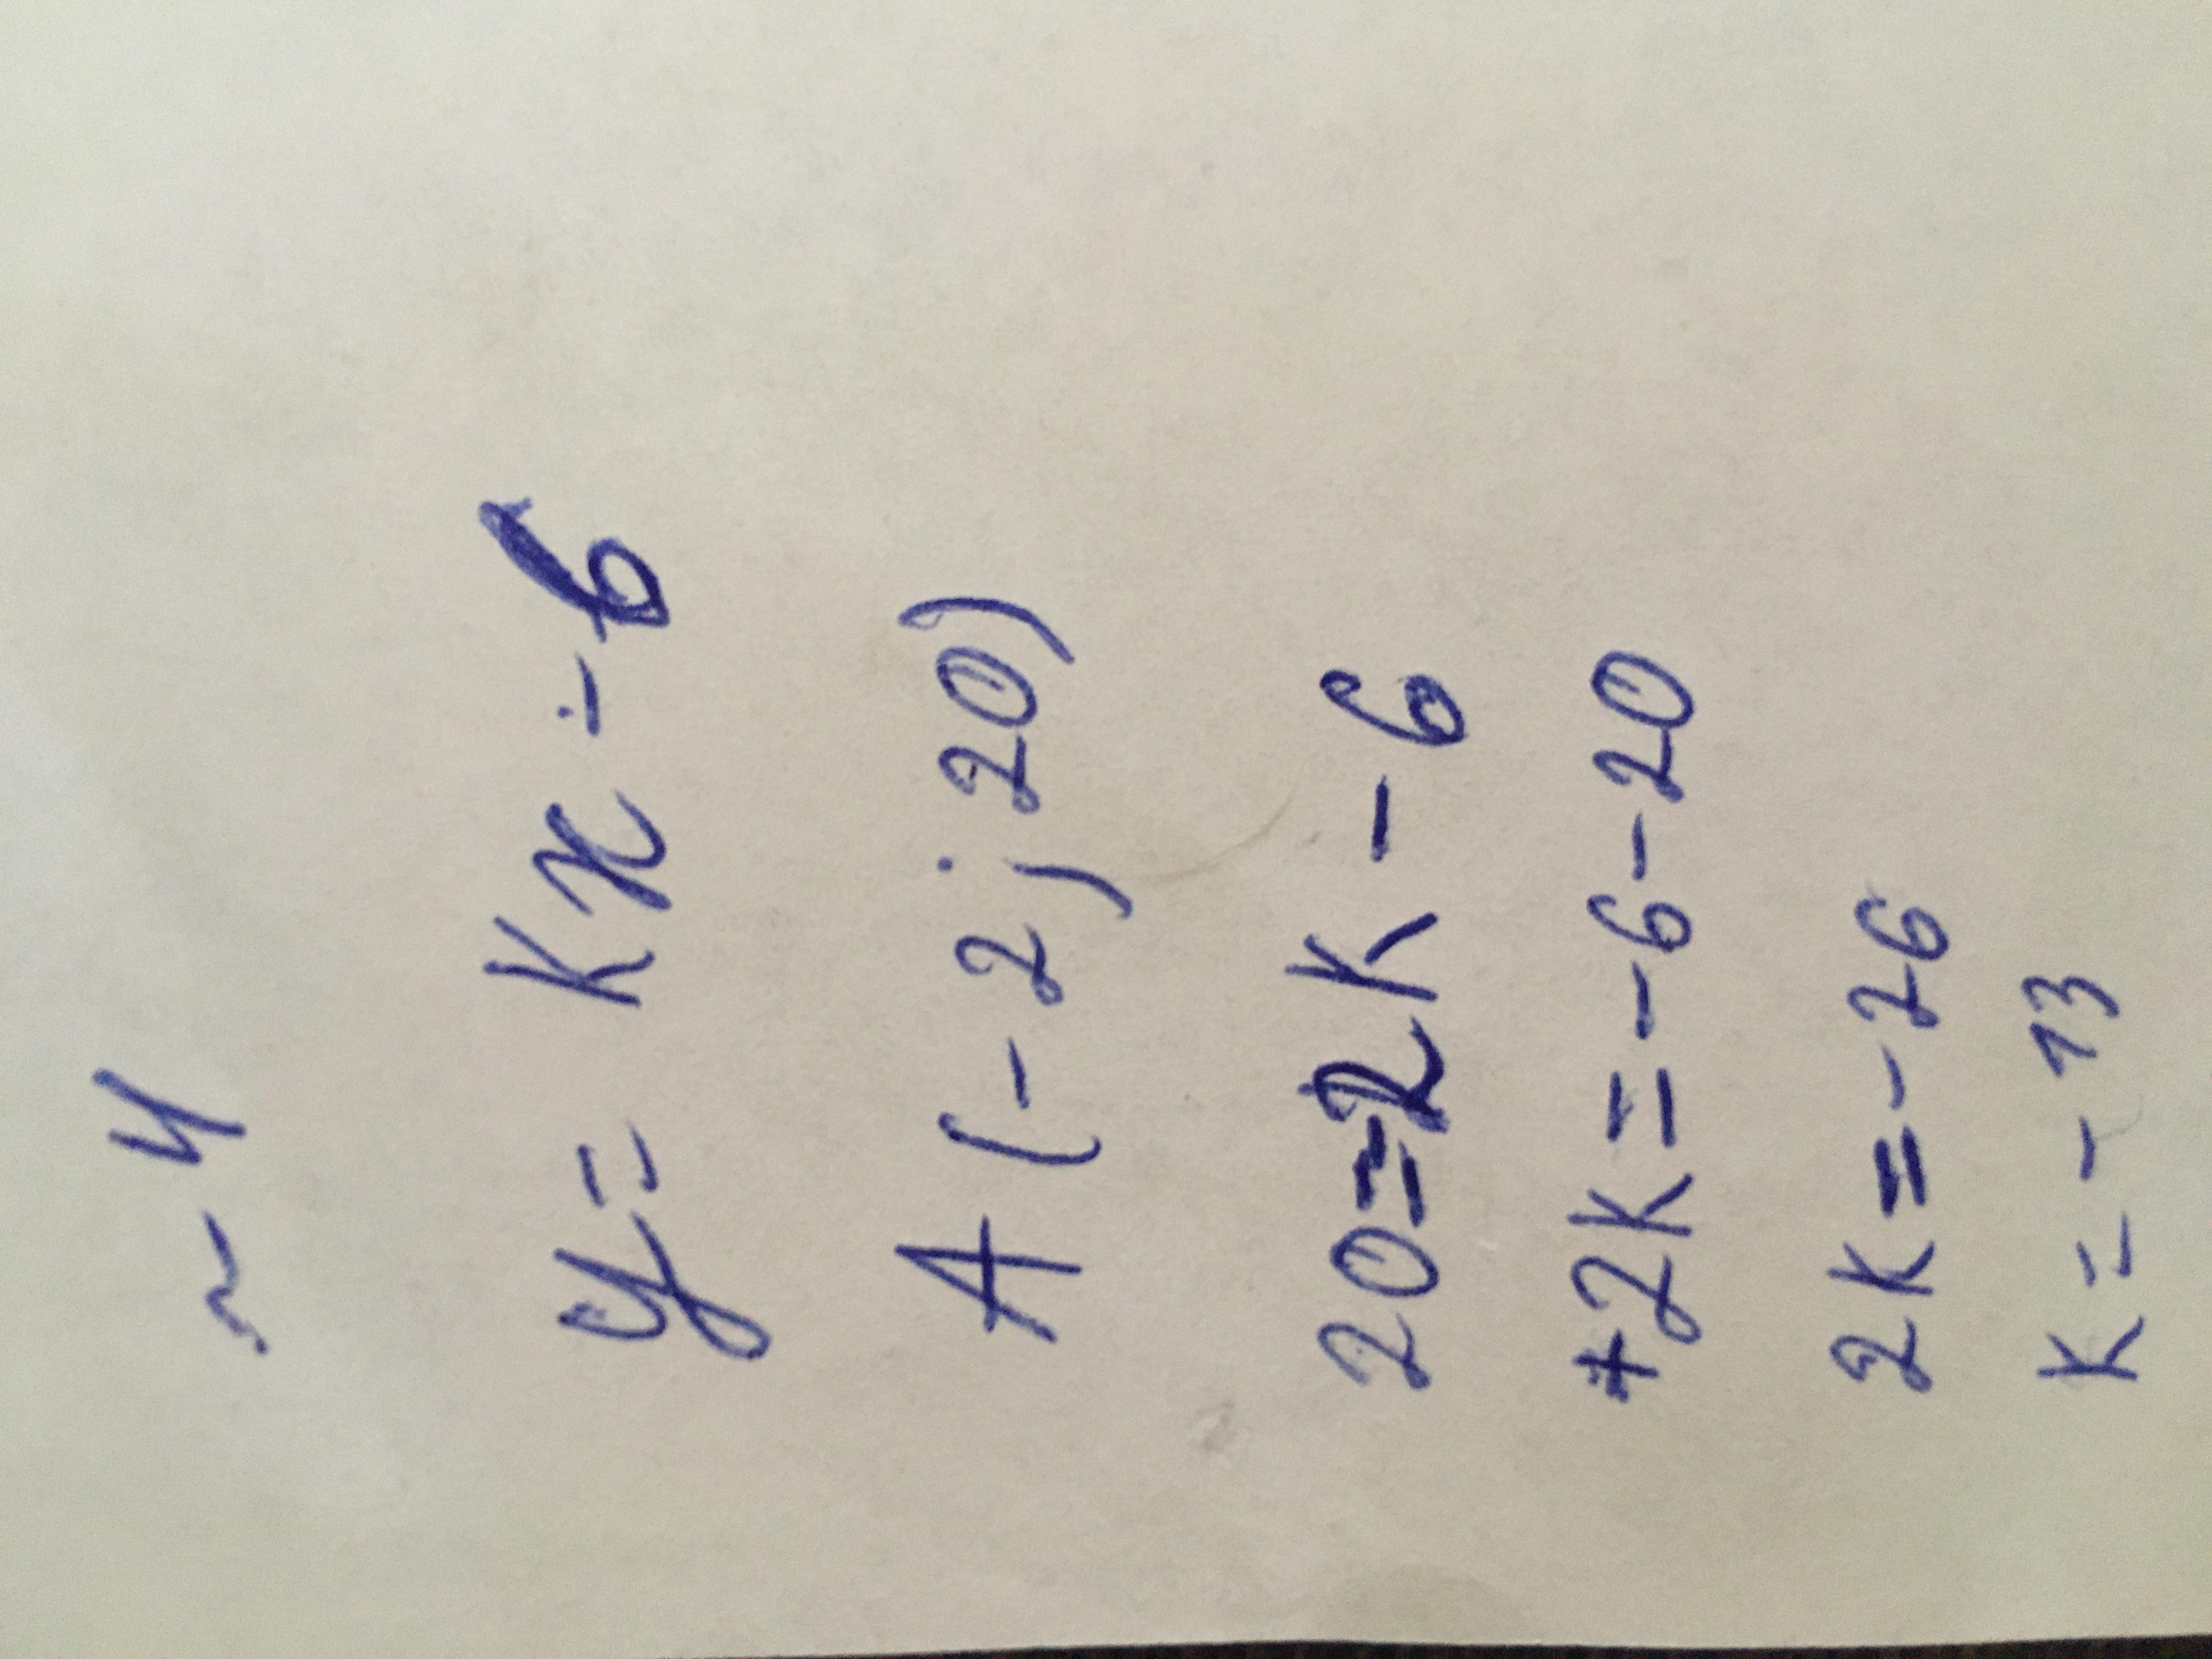 ~ 4
y = Kx - 6
A (- 2 ; 20)
20 = -2K - 6
+2K = -6 - 20
2K = - 26
K = - 13